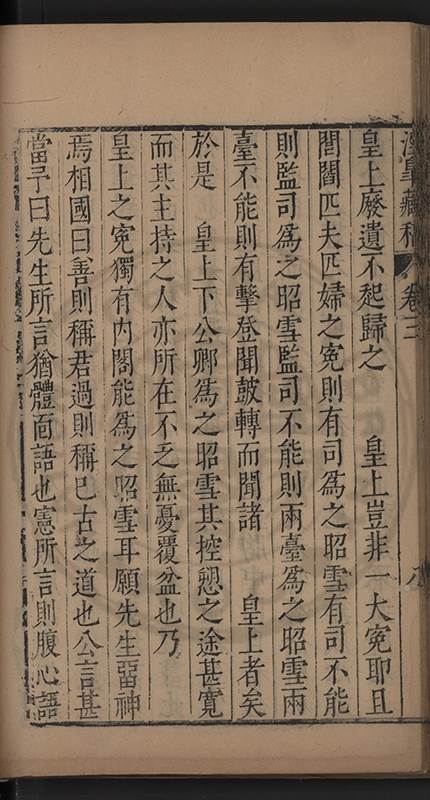 涇皐藏稿 卷三 八
皇上廢遺不起歸之　皇上豈非一大寃耶且
閭閻匹夫匹婦之寃則有司爲之昭雪有司不能
則監司爲之昭雪監司不能則兩臺爲之昭雪兩
臺不能則有擊登聞皷轉而聞諸　皇上者矣
於是　皇上下公卿爲之昭雪其控愬之途甚寛
而其主持之人亦所在不乏無憂覆盆也乃
皇上之寃獨有内閣能爲之昭雪耳願先生畱神
焉相國曰善則稱君過則稱已古之道也公言甚
當予曰先生所言猶體面語也憲所言則腹心語